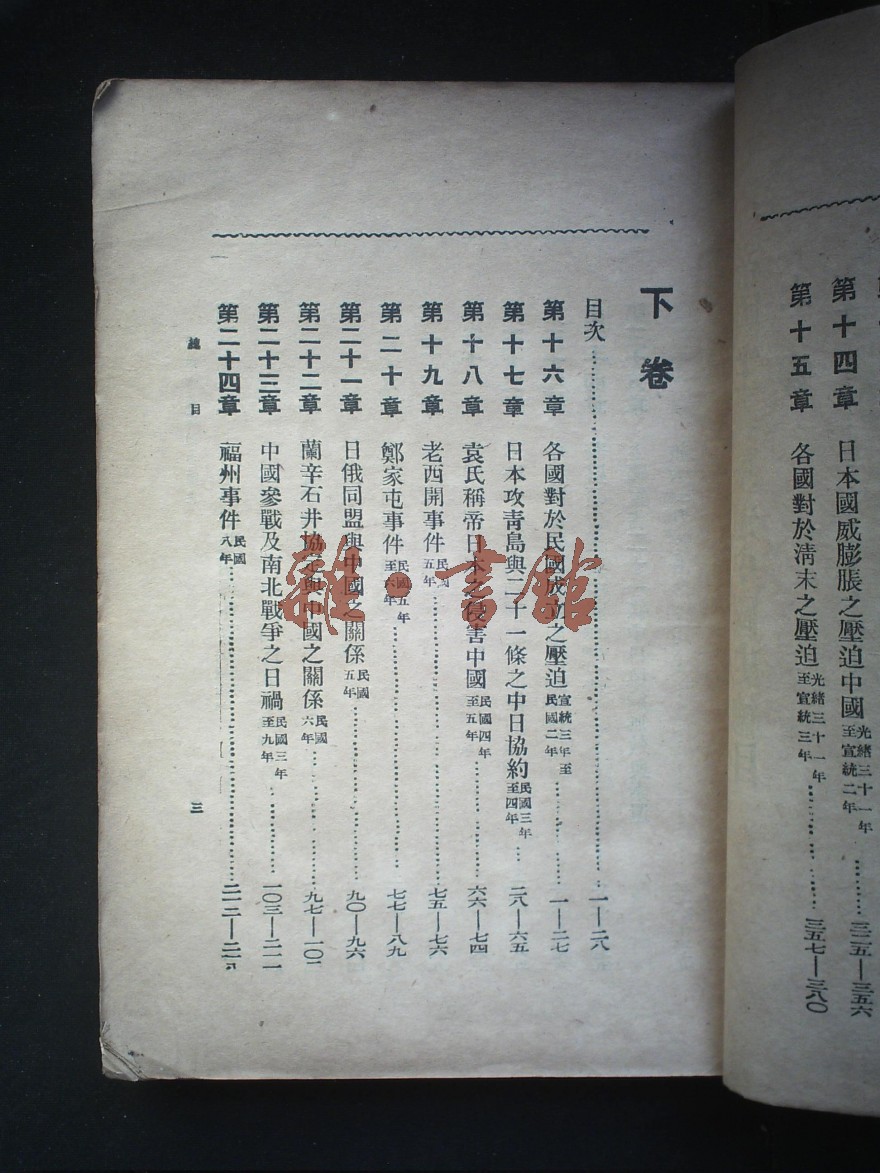 第十四章 日本國威膨脹之壓迫中國 光緒三十一年至宣統二年 三二五—三五六
第十五章 各國對於清末之壓迫 光緒三十一年至宣統三年 三五七—三八〇
下卷
目次 一—二八
第十六章 各國對於民國成立之壓迫 宣統三年至民國二年 一—二七
第十七章 日本攻青島與二十一條之中日協約 民國三年至四年 二八—六五
第十八章 袁氏稱帝日本之侵害中國 民國四年至五年 六六—七四
第十九章 老西開事件 民國五年 七五—七六
第二十章 鄭家屯事件 民國五年至六年 七七—八九
第二十一章 日俄同盟與中國之關係 民國五年 九〇—九六
第二十二章 蘭辛石井協定與中國之關係 民國六年 九七—一〇二
第二十三章 中國參戰及南北戰爭之日禍 民國三年至九年 一〇三—二一一
第二十四章 福州事件 民國八年 二一二—二一
總目 三
雜·書館